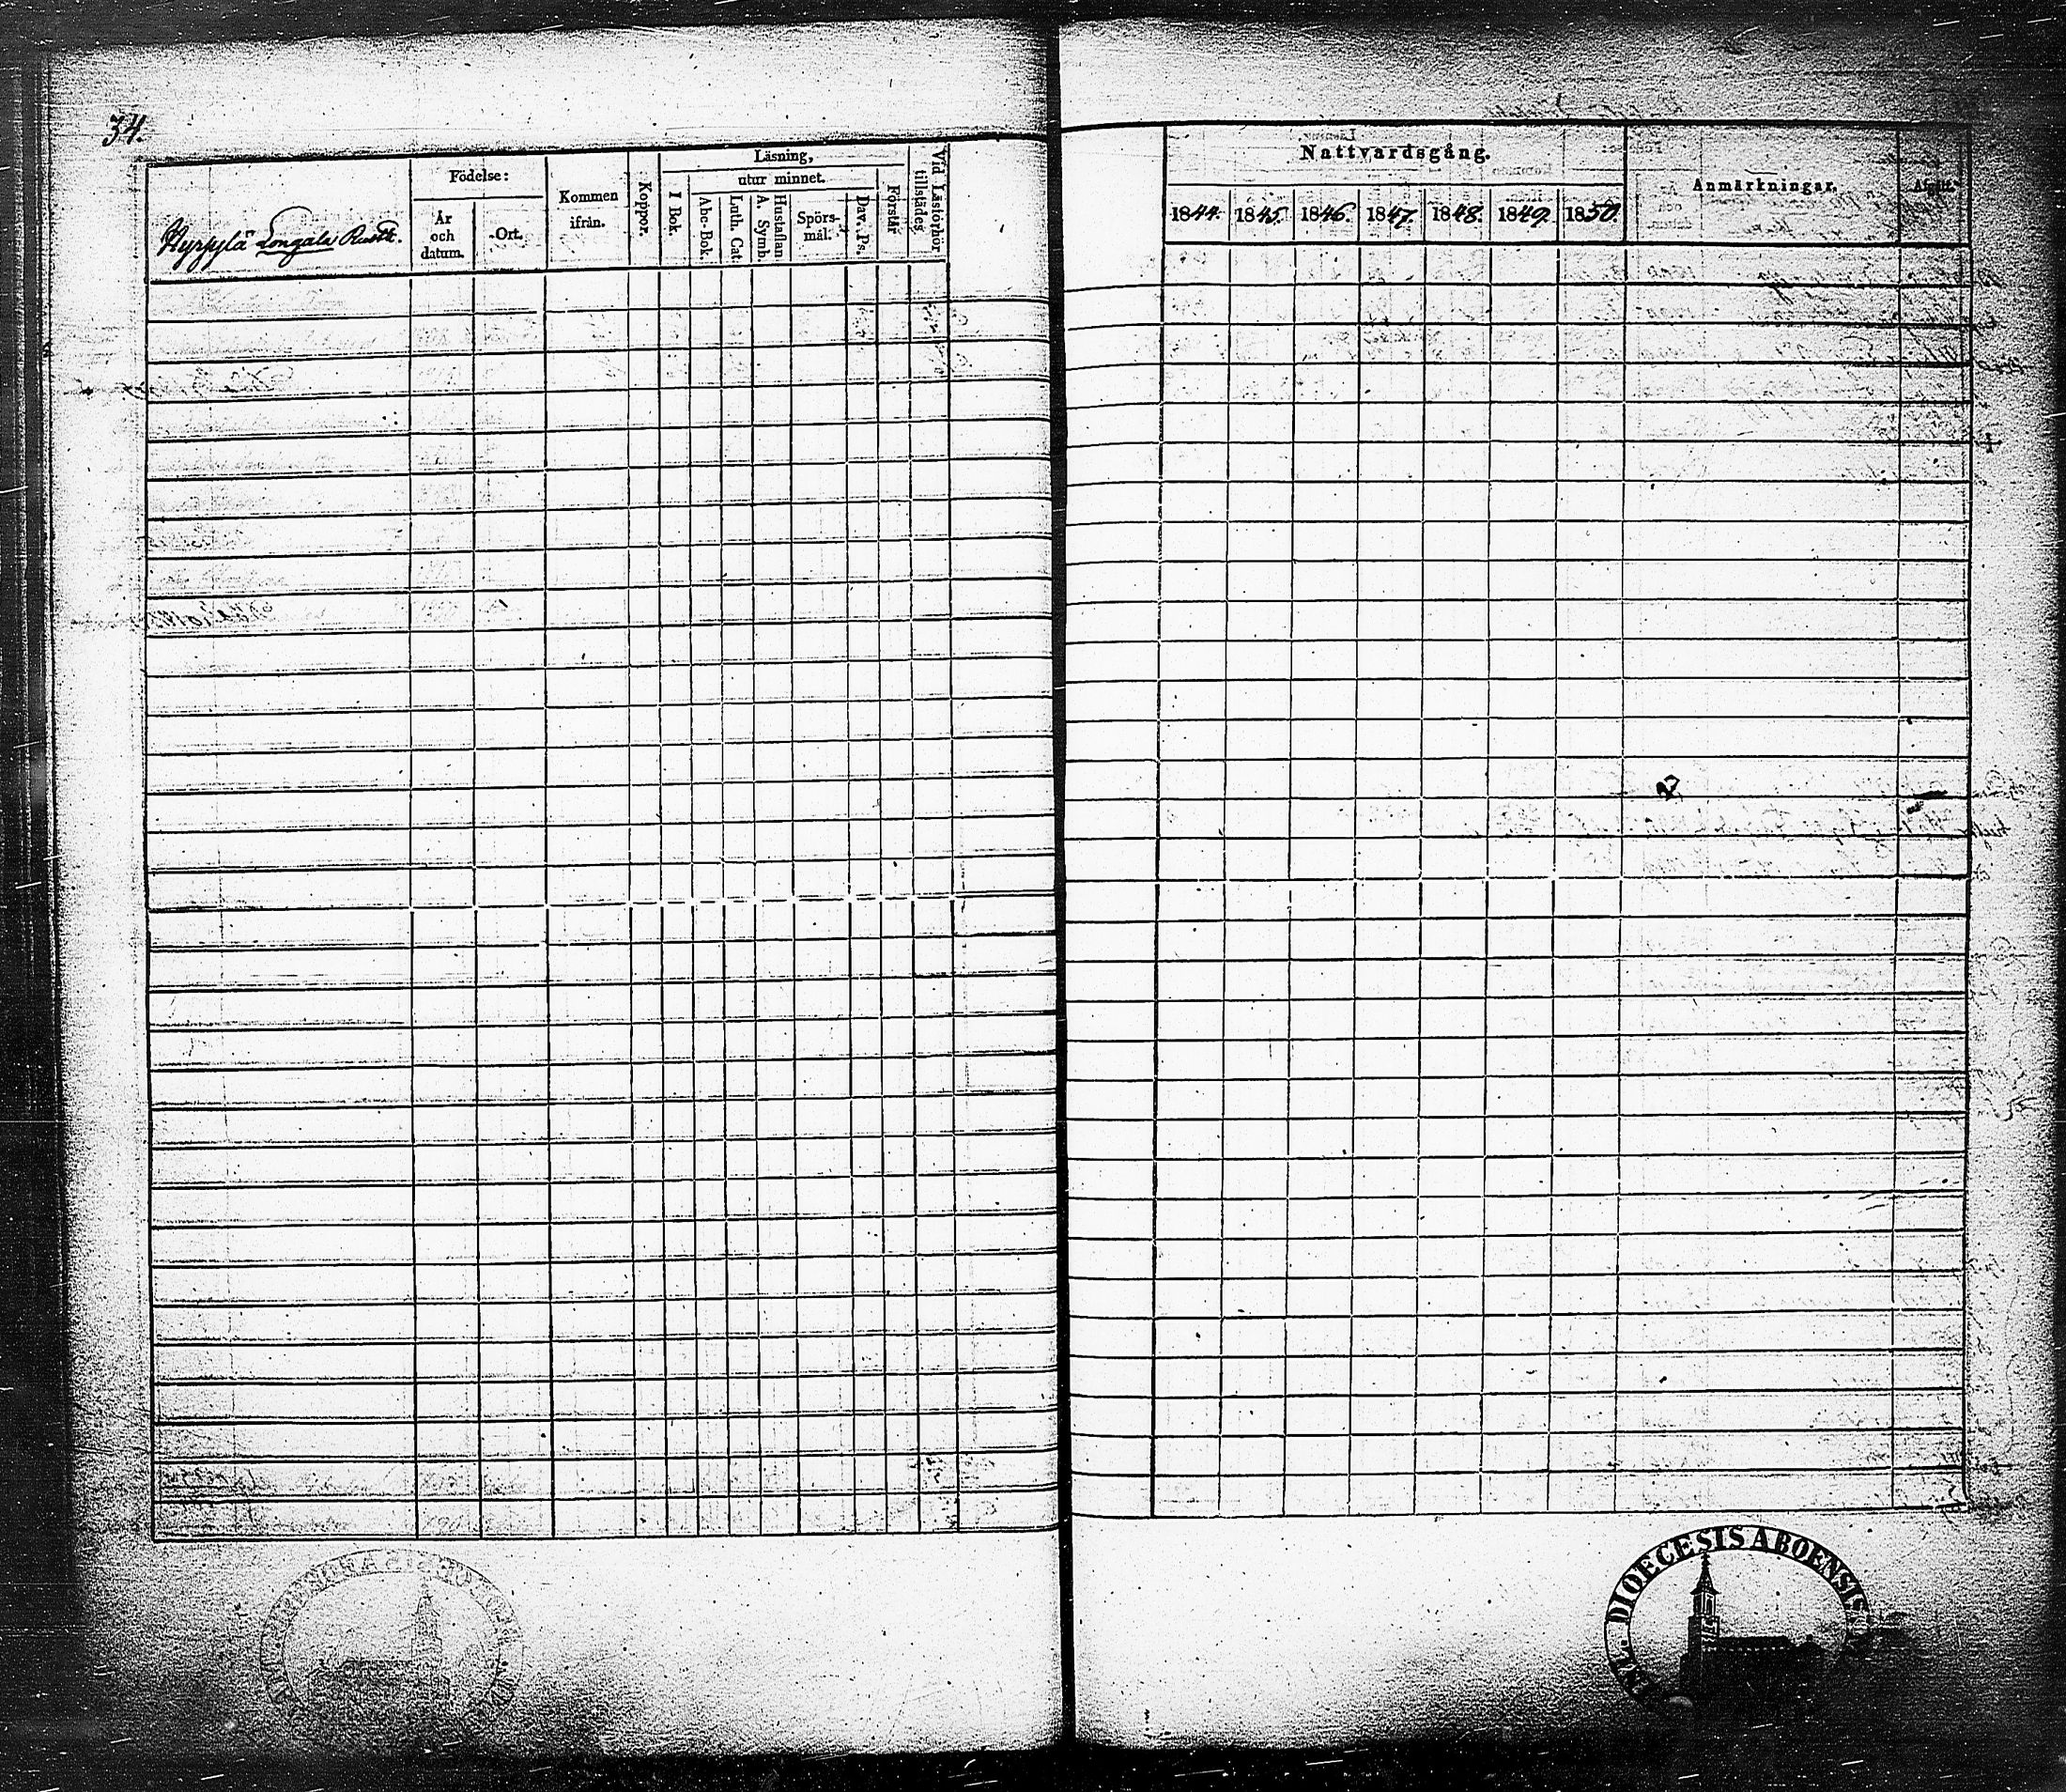 34.
Hyrpylä Longala Rustt.
Födelse:
År och datum.
Ort.
Kommen ifrån.
Koppor.
Läsning,
utur minnet.
I Bok.
Abc-Bok.
Luth. Cat.
Hustaflan A. Symb.
Spörsmål.
Dav. Ps.
Förstår
Vid Läsförhör tillstädes
Nattvardsgång.
1844. 1845. 1846. 1847. 1848. 1849. 1850.
Anmärkningar.
Afgått.
DIOECESIS ABOENSIS